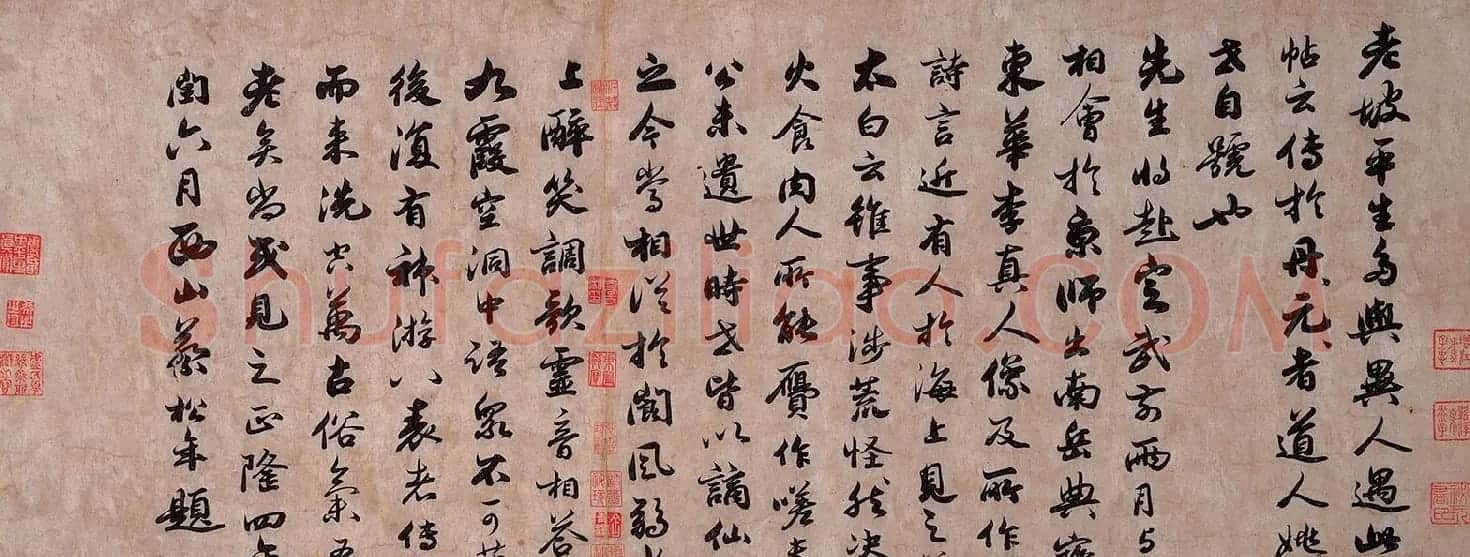 老坡平生多与異人遇此
帖云傳於丹元者道人姚
安世自號也
先生将赴定武前兩月与
相會於京師出南岳典寳
東華李真人像及所作
詩言近有人於海上見之
太白云雖事涉荒怪然决
火食肉人所能贋作嗟
公未遺世時世皆以謫仙
之今當相從於閬風
上醉笑調歌靈音相荅
九霞空洞中語泉不可
後復有神游八表者傳
而来洗空萬古俗氣吾
老矣尚或見之正隆四年
閏六月西山蔡松年題
Shufaziliao.COM